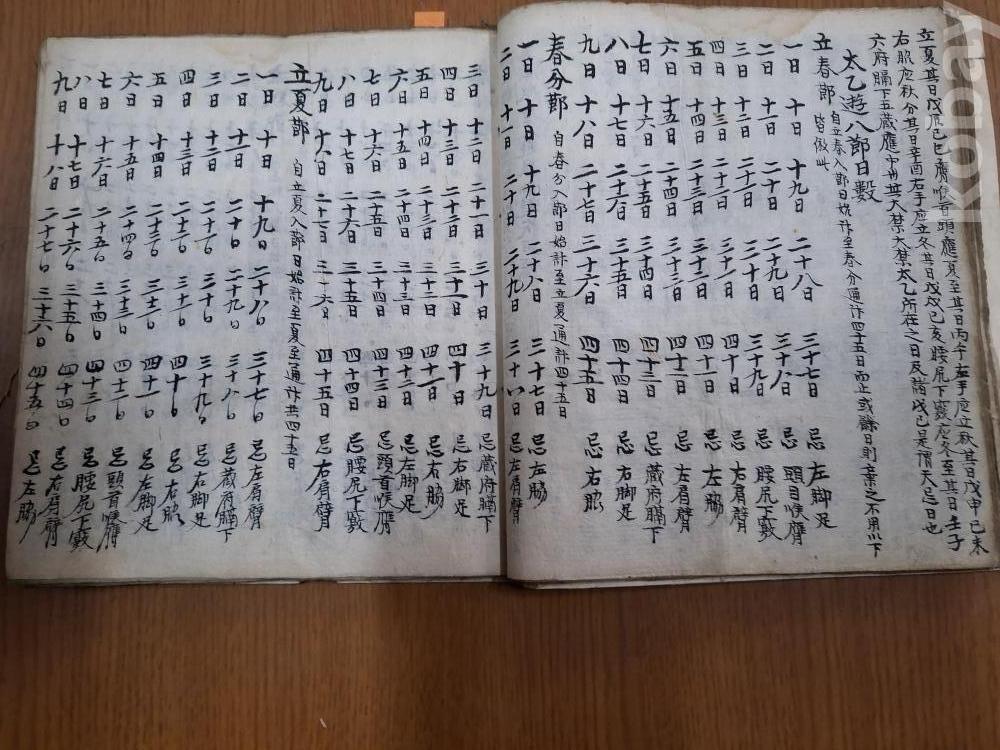 立夏其日戊辰己巳膺喉首頭應夏至其日丙午左手應立秋其日戊申己未
右脇應秋分其日辛酉右手應立冬其日戊戌己亥腰尻下竅應冬至其日壬子
六府膈下五藏應中州其大禁大禁太乙所在之日及諸戊己是謂天忌日也
太乙遊八節日數
立春節 自立春入節日始計至春分通計四十五日而止或餘日則棄之不用以下
皆倣此
一日 十日 十九日 二十八日 三十七日 忌 左脚足
二日 十一日 二十日 二十九日 三十八日 忌 頭目喉膺
三日 十二日 二十一日 三十日 三十九日 忌 腰尻下竅
四日 十三日 二十二日 三十一日 四十日 忌 右肩臂
五日 十四日 二十三日 三十二日 四十一日 忌 左脇
六日 十五日 二十四日 三十三日 四十二日 忌 左肩臂
七日 十六日 二十五日 三十四日 四十三日 忌 藏府膈下
八日 十七日 二十六日 三十五日 四十四日 忌 右脚足
九日 十八日 二十七日 三十六日 四十五日 忌 右脇
春分節 自春分入節日始計至立夏通計四十五日
一日 十日 十九日 二十八日 三十七日 忌 左脇
二日 十一日 二十日 二十九日 三十八日 忌 左肩臂
三日 十二日 二十一日 三十日 三十九日 忌 藏府膈下
四日 十三日 二十二日 三十一日 四十日 忌 右脚足
五日 十四日 二十三日 三十二日 四十一日 忌 右脇
六日 十五日 二十四日 三十三日 四十二日 忌 左脚足
七日 十六日 二十五日 三十四日 四十三日 忌 頭首喉膺
八日 十七日 二十六日 三十五日 四十四日 忌 腰尻下竅
九日 十八日 二十七日 三十六日 四十五日 忌 右肩臂
立夏節 自立夏入節日始計至夏至通計共四十五日
一日 十日 十九日 二十八日 三十七日 忌 左肩臂
二日 十一日 二十日 二十九日 三十八日 忌 藏府膈下
三日 十二日 二十一日 三十日 三十九日 忌 右脚足
四日 十三日 二十二日 三十一日 四十日 忌 右脇
五日 十四日 二十三日 三十二日 四十一日 忌 左脚足
六日 十五日 二十四日 三十三日 四十二日 忌 頭首喉膺
七日 十六日 二十五日 三十四日 四十三日 忌 腰尻下竅
八日 十七日 二十六日 三十五日 四十四日 忌 右肩臂
九日 十八日 二十七日 三十六日 四十五日 忌 左脇